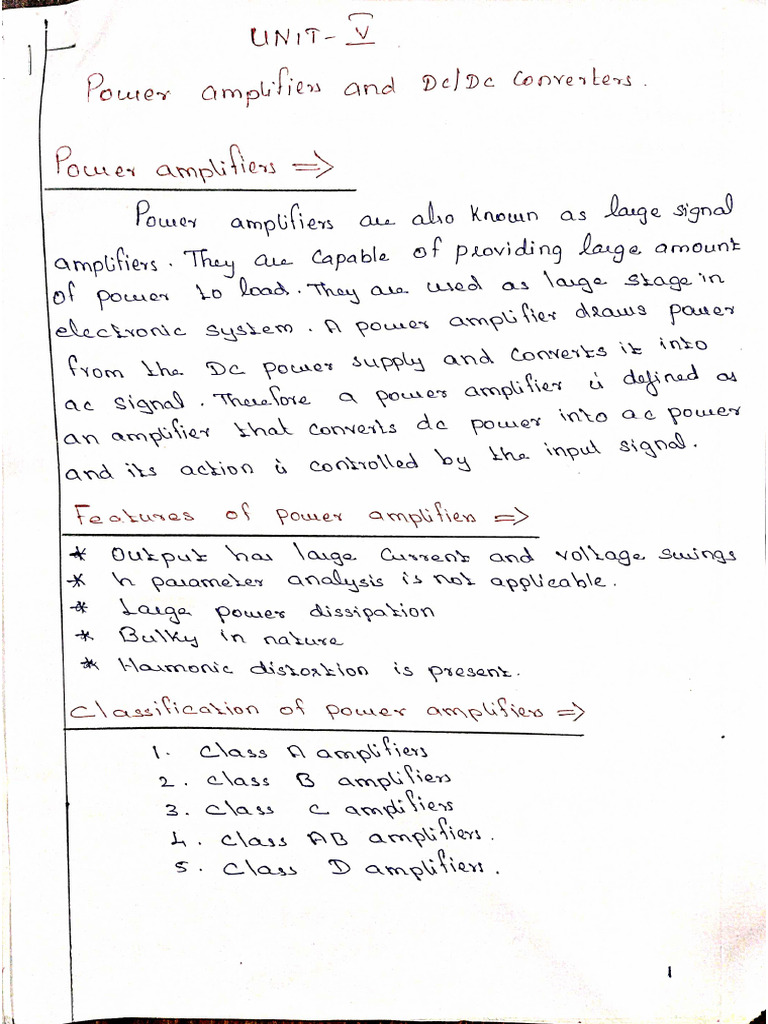 1
UNIT-V
Power amplifiers and Dc/Dc Converters.
Power amplifiers =>
Power amplifiers are also known as large signal
amplifiers. They are capable of providing large amount
of power to load. They are used as large stage in
electronic system. A power amplifier draws power
from the DC power supply and converts it into
ac signal. Therefore a power amplifier is defined as
an amplifier that converts dc power into ac power
and its action is controlled by the input signal.
Features of power amplifiers =>
* Output has large current and voltage swings
* h parameter analysis is not applicable.
* Large power dissipation
* Bulky in nature
* Harmonic distortion is present.
Classification of power amplifiers =>
1. Class A amplifiers
2. Class B amplifiers
3. Class C amplifiers
4. Class AB amplifiers.
5. Class D amplifiers.
1